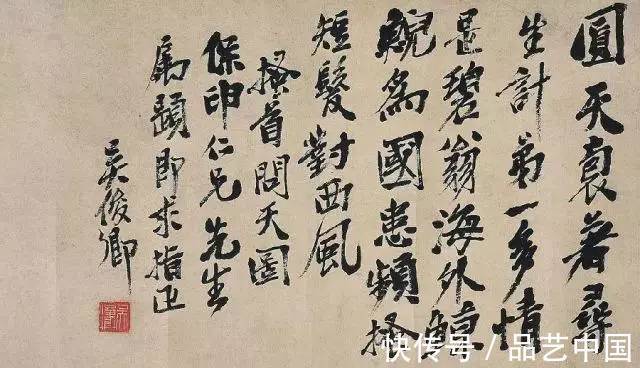 圓天裏著尋
生計第一多情
是碧翁海外鯨
鯢為國患頻搔
短髮對西風
搔首問天圖
保印仁兄先生
屬題即求指正
吳俊卿
快传号 / 品艺中国